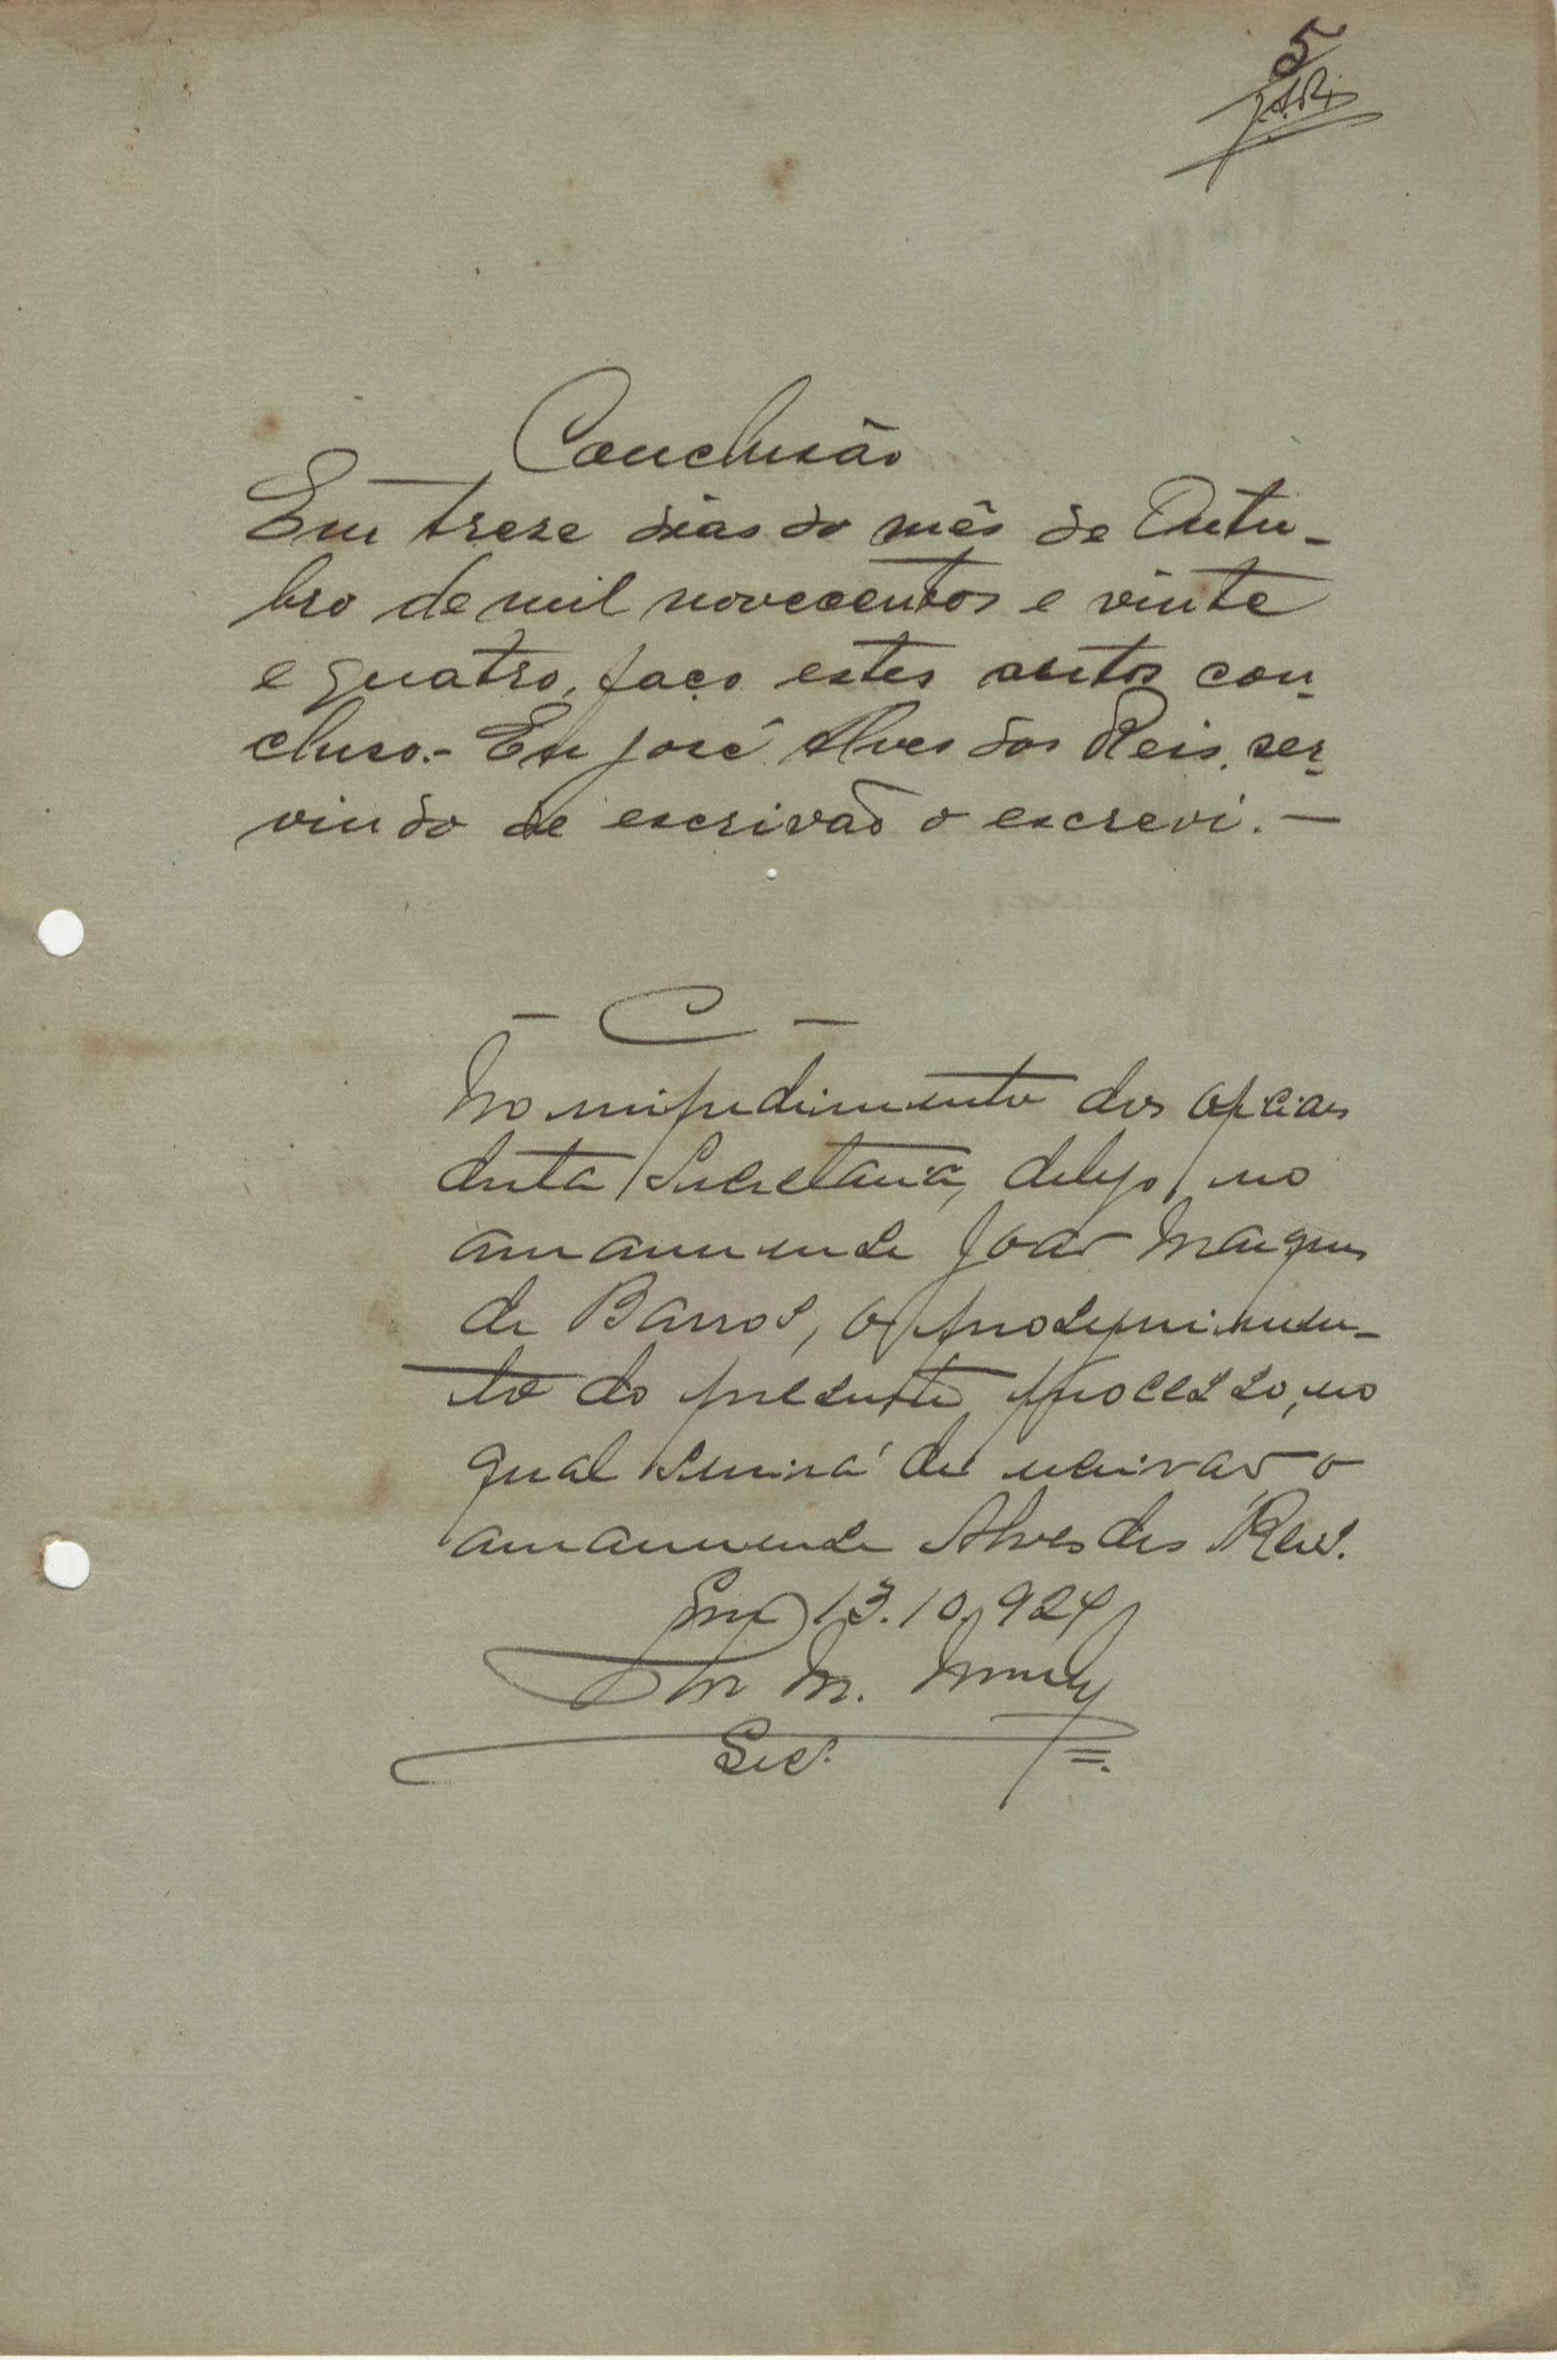 5
J.A.Reis
Conclusão
Em treze dias do mês de Outu-
bro de mil novecentos e vinte
e quatro, faço estes autos con-
cluso.- Eu José Alves dos Reis, ser-
vindo de escrivão o escrevi. —
— C —
No impedimento dos oficiaes
desta Secretaria, delego, no
amanuense João Marques
de Barros, o proseguimen-
to do presente processo, no
qual servirá de escrivão o
amanuense Alves dos Reis.
Em 13.10.924
M.
Sec.